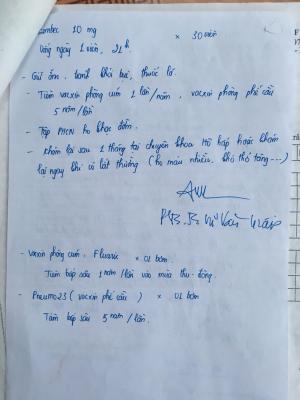 10 mg x 30 viên
Uống ngày 1 viên, 21h
- Giữ ấm, tránh khói bụi, thuốc lá.
- Tiêm vacxin phòng cúm 1 lần/năm, vacxin phòng phế cầu
5 năm/lần
- Tập PHCN hô hấp
- Khám lại sau 1 tháng tại chuyên khoa Hô hấp hoặc khám
lại ngay khi có bất thường (ho máu nhiều, khó thở tăng...)
- Vacxin phòng cúm: x 01 bơm
Tiêm bắp sâu 1 năm/lần vào mùa thu - đông.
- Pneumo23 (vacxin phế cầu) x 01 bơm
Tiêm bắp sâu 5 năm/lần.